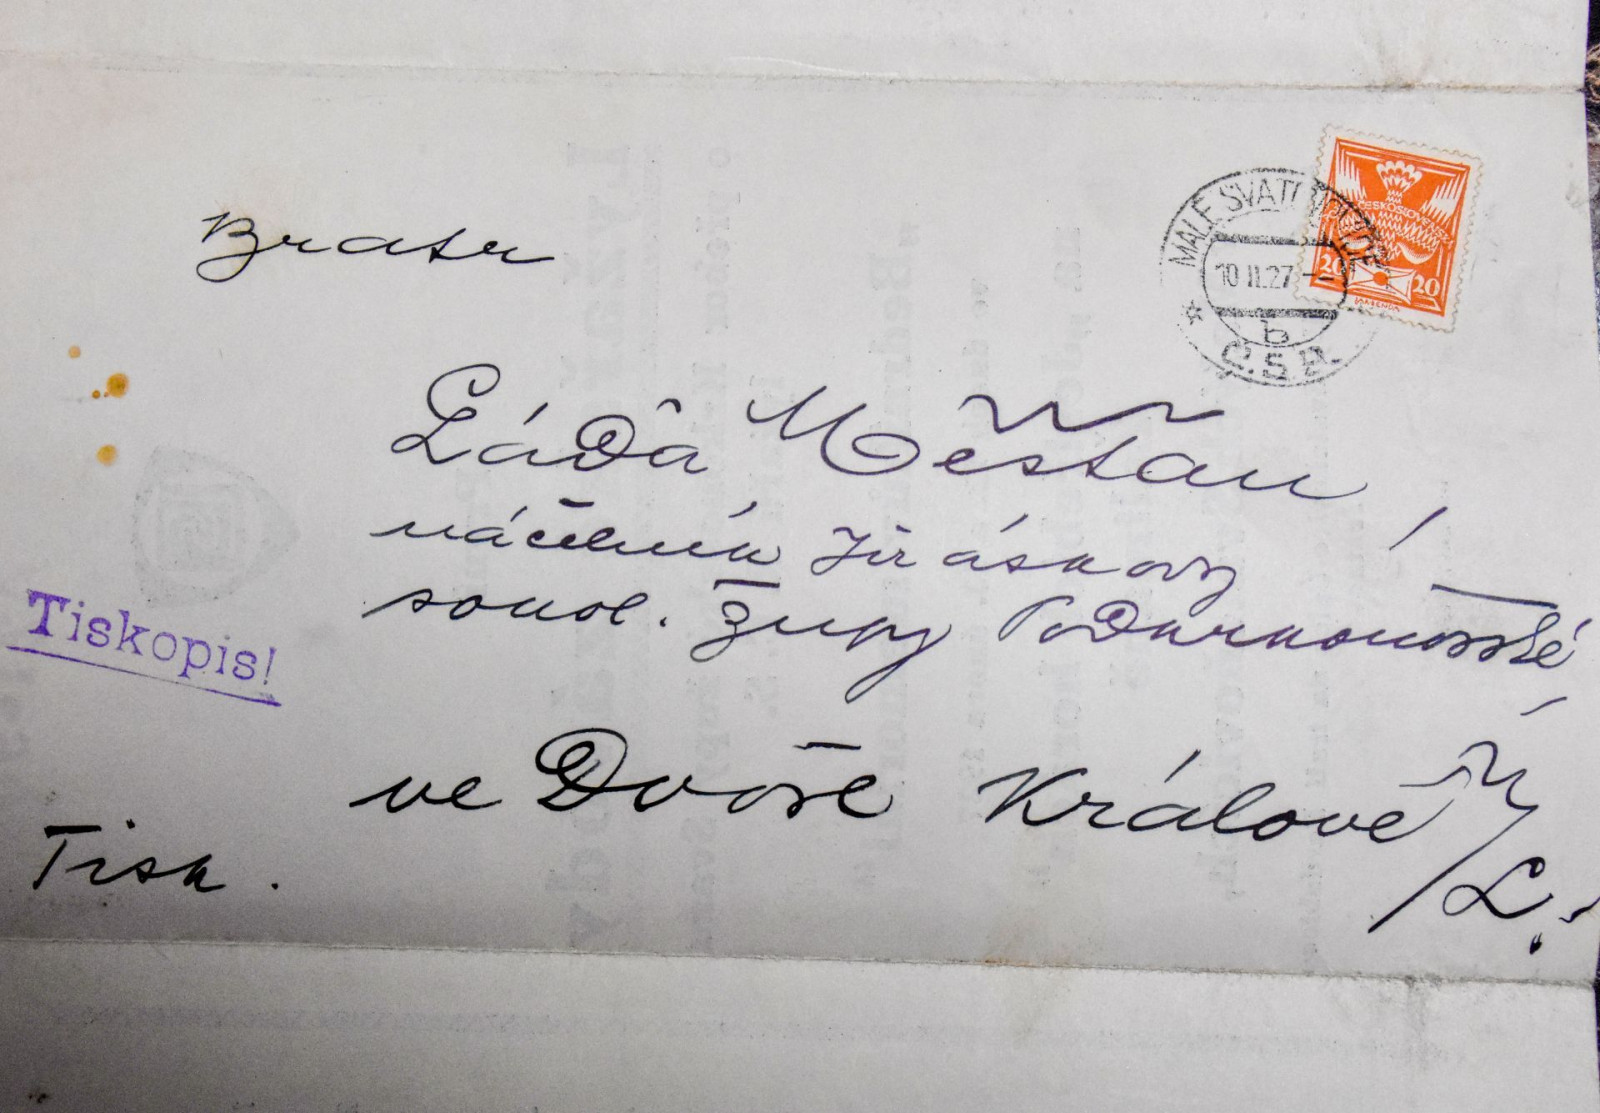 Bratr
MALÉ SVATOŇOVICE
10 II.27
b
Č.S.R.
ČESKOSLOVENSKO
20 20
Láďa Měšťan,
náčelník Jiráskovy
sokol. župy Podkrkonošské,
Tiskopis!
ve Dvoře Králové n/L.
Tisk.